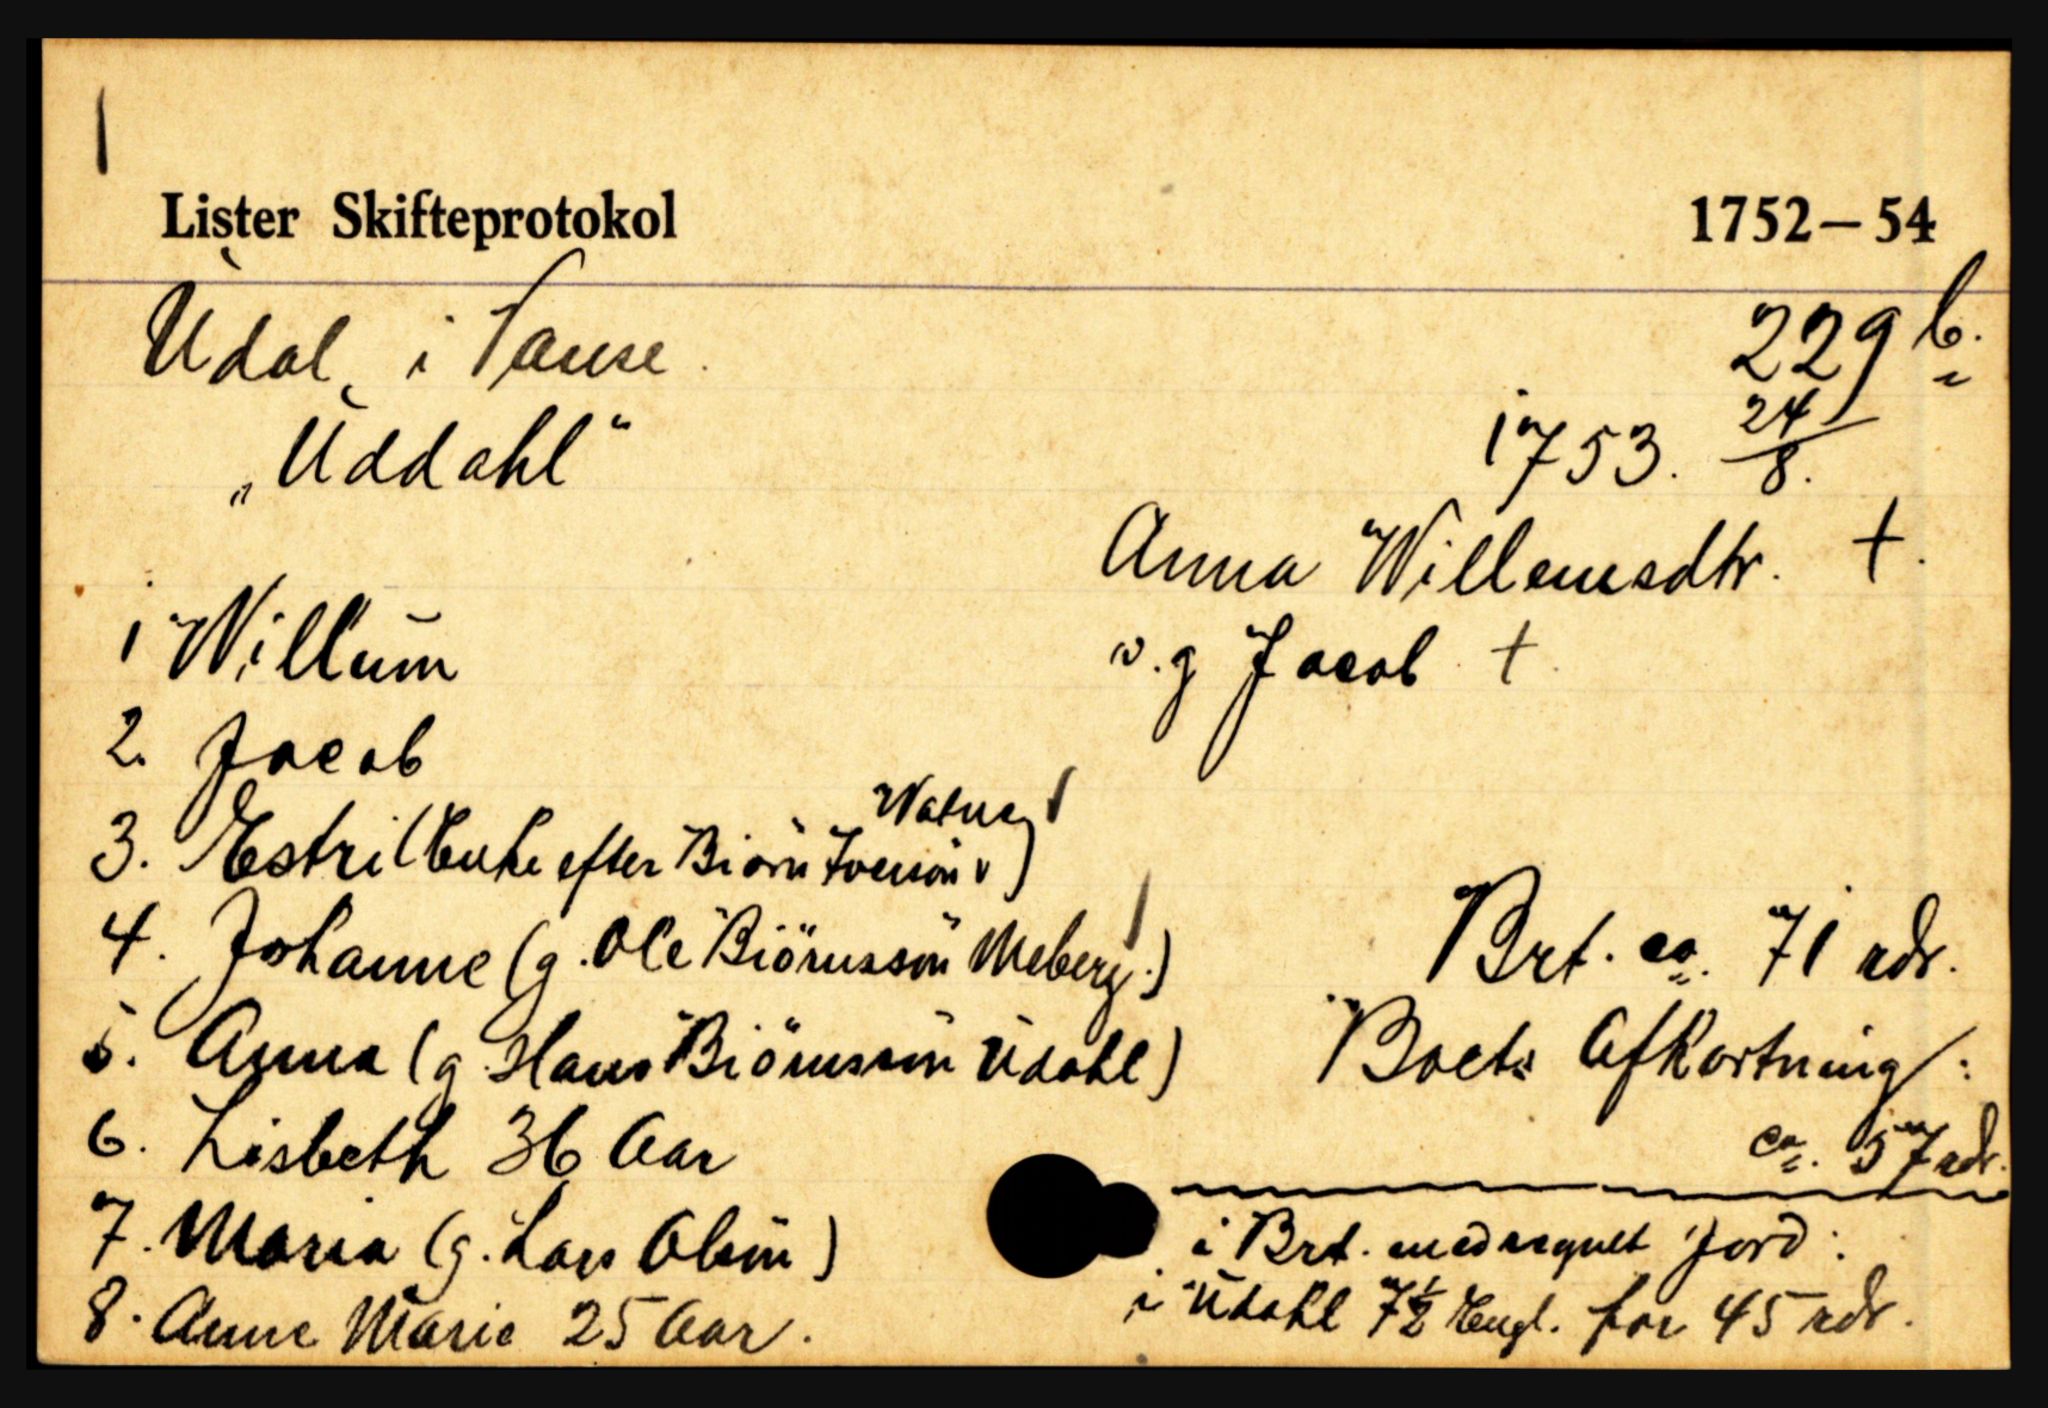 Lister Skifteprotokol 1752–54
Udal i Vanse. 229 b.
„Uddahl“ 1753. 24/8.
Anna Willemsdtr. +.
v. g Jacob +.
1 Willum
2. Jacob
3. Estri (Enke efter Biörn Iversön)
4. Johanne (g. Ole Biörnssön Meberg.)
5. Anna (g. Hans Biörnssön Udahl)
6. Lisbeth 36 Aar
7. Maria (g. Lars Olsön)
8. Anne Marie 25 Aar.
Brt. ca. 71 rdr.
Boets Afkortning:
ca. 57 rdr.
i Brt. medregnet Jord:
i Udahl 7½ Engl. for 45 rdr.